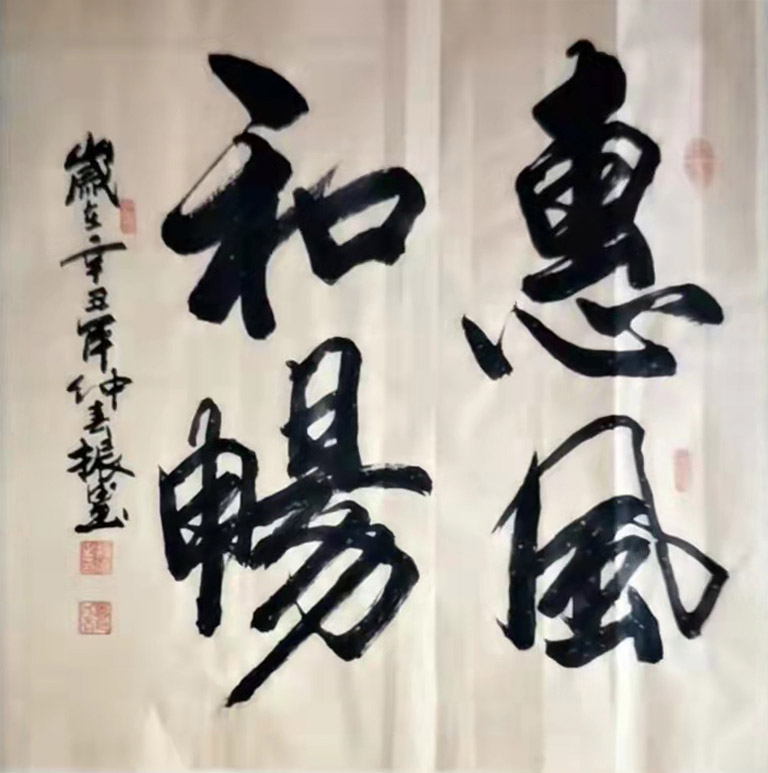 惠風
和暢
歲在辛丑年仲春振墨